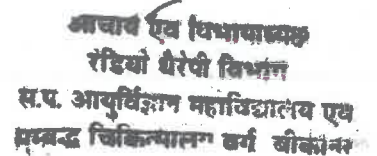 आचार्य एवं विभागाध्यक्ष
रेडियो थैरेपी विभाग
स.प. आयुर्विज्ञान महाविद्यालय एवं
सम्बद्ध चिकित्सालय वर्ग बीकानेर